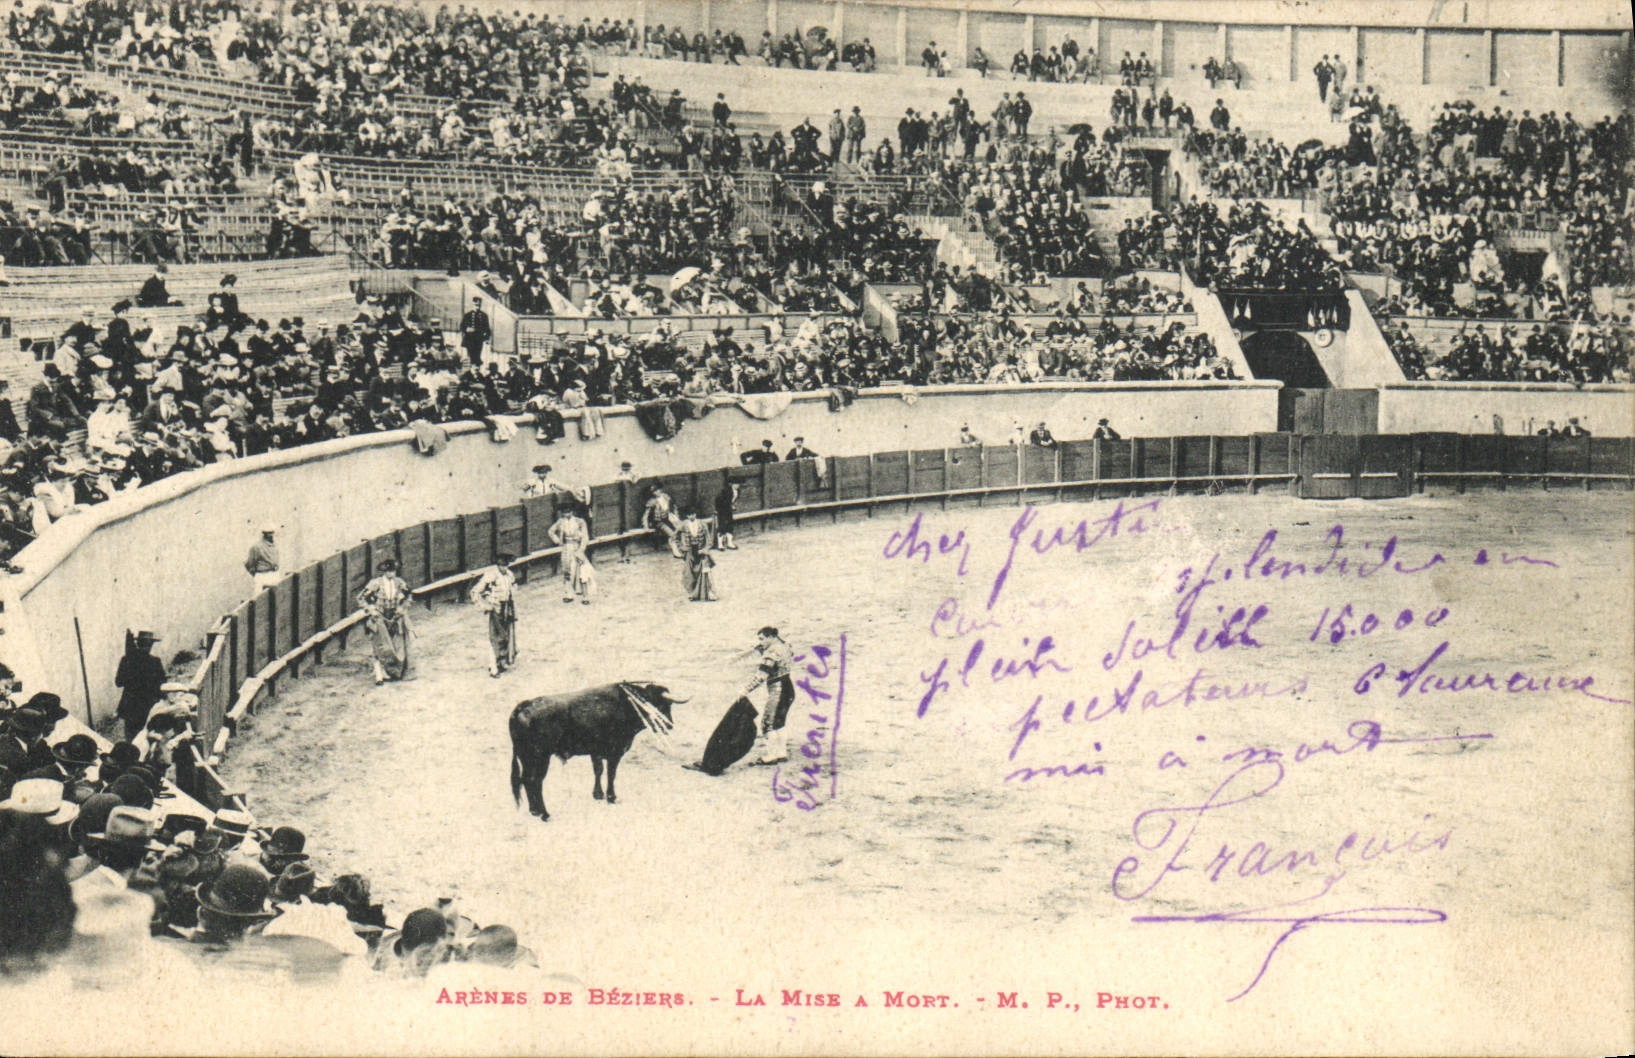 cheq Justin
splendides en
plein Soleill 15.000
pectateurs 6 Taureaux
mis à mort
François
Fuentès
ARÈNES DE BÉZIERS. - LA MISE A MORT. - M. P., PHOT.